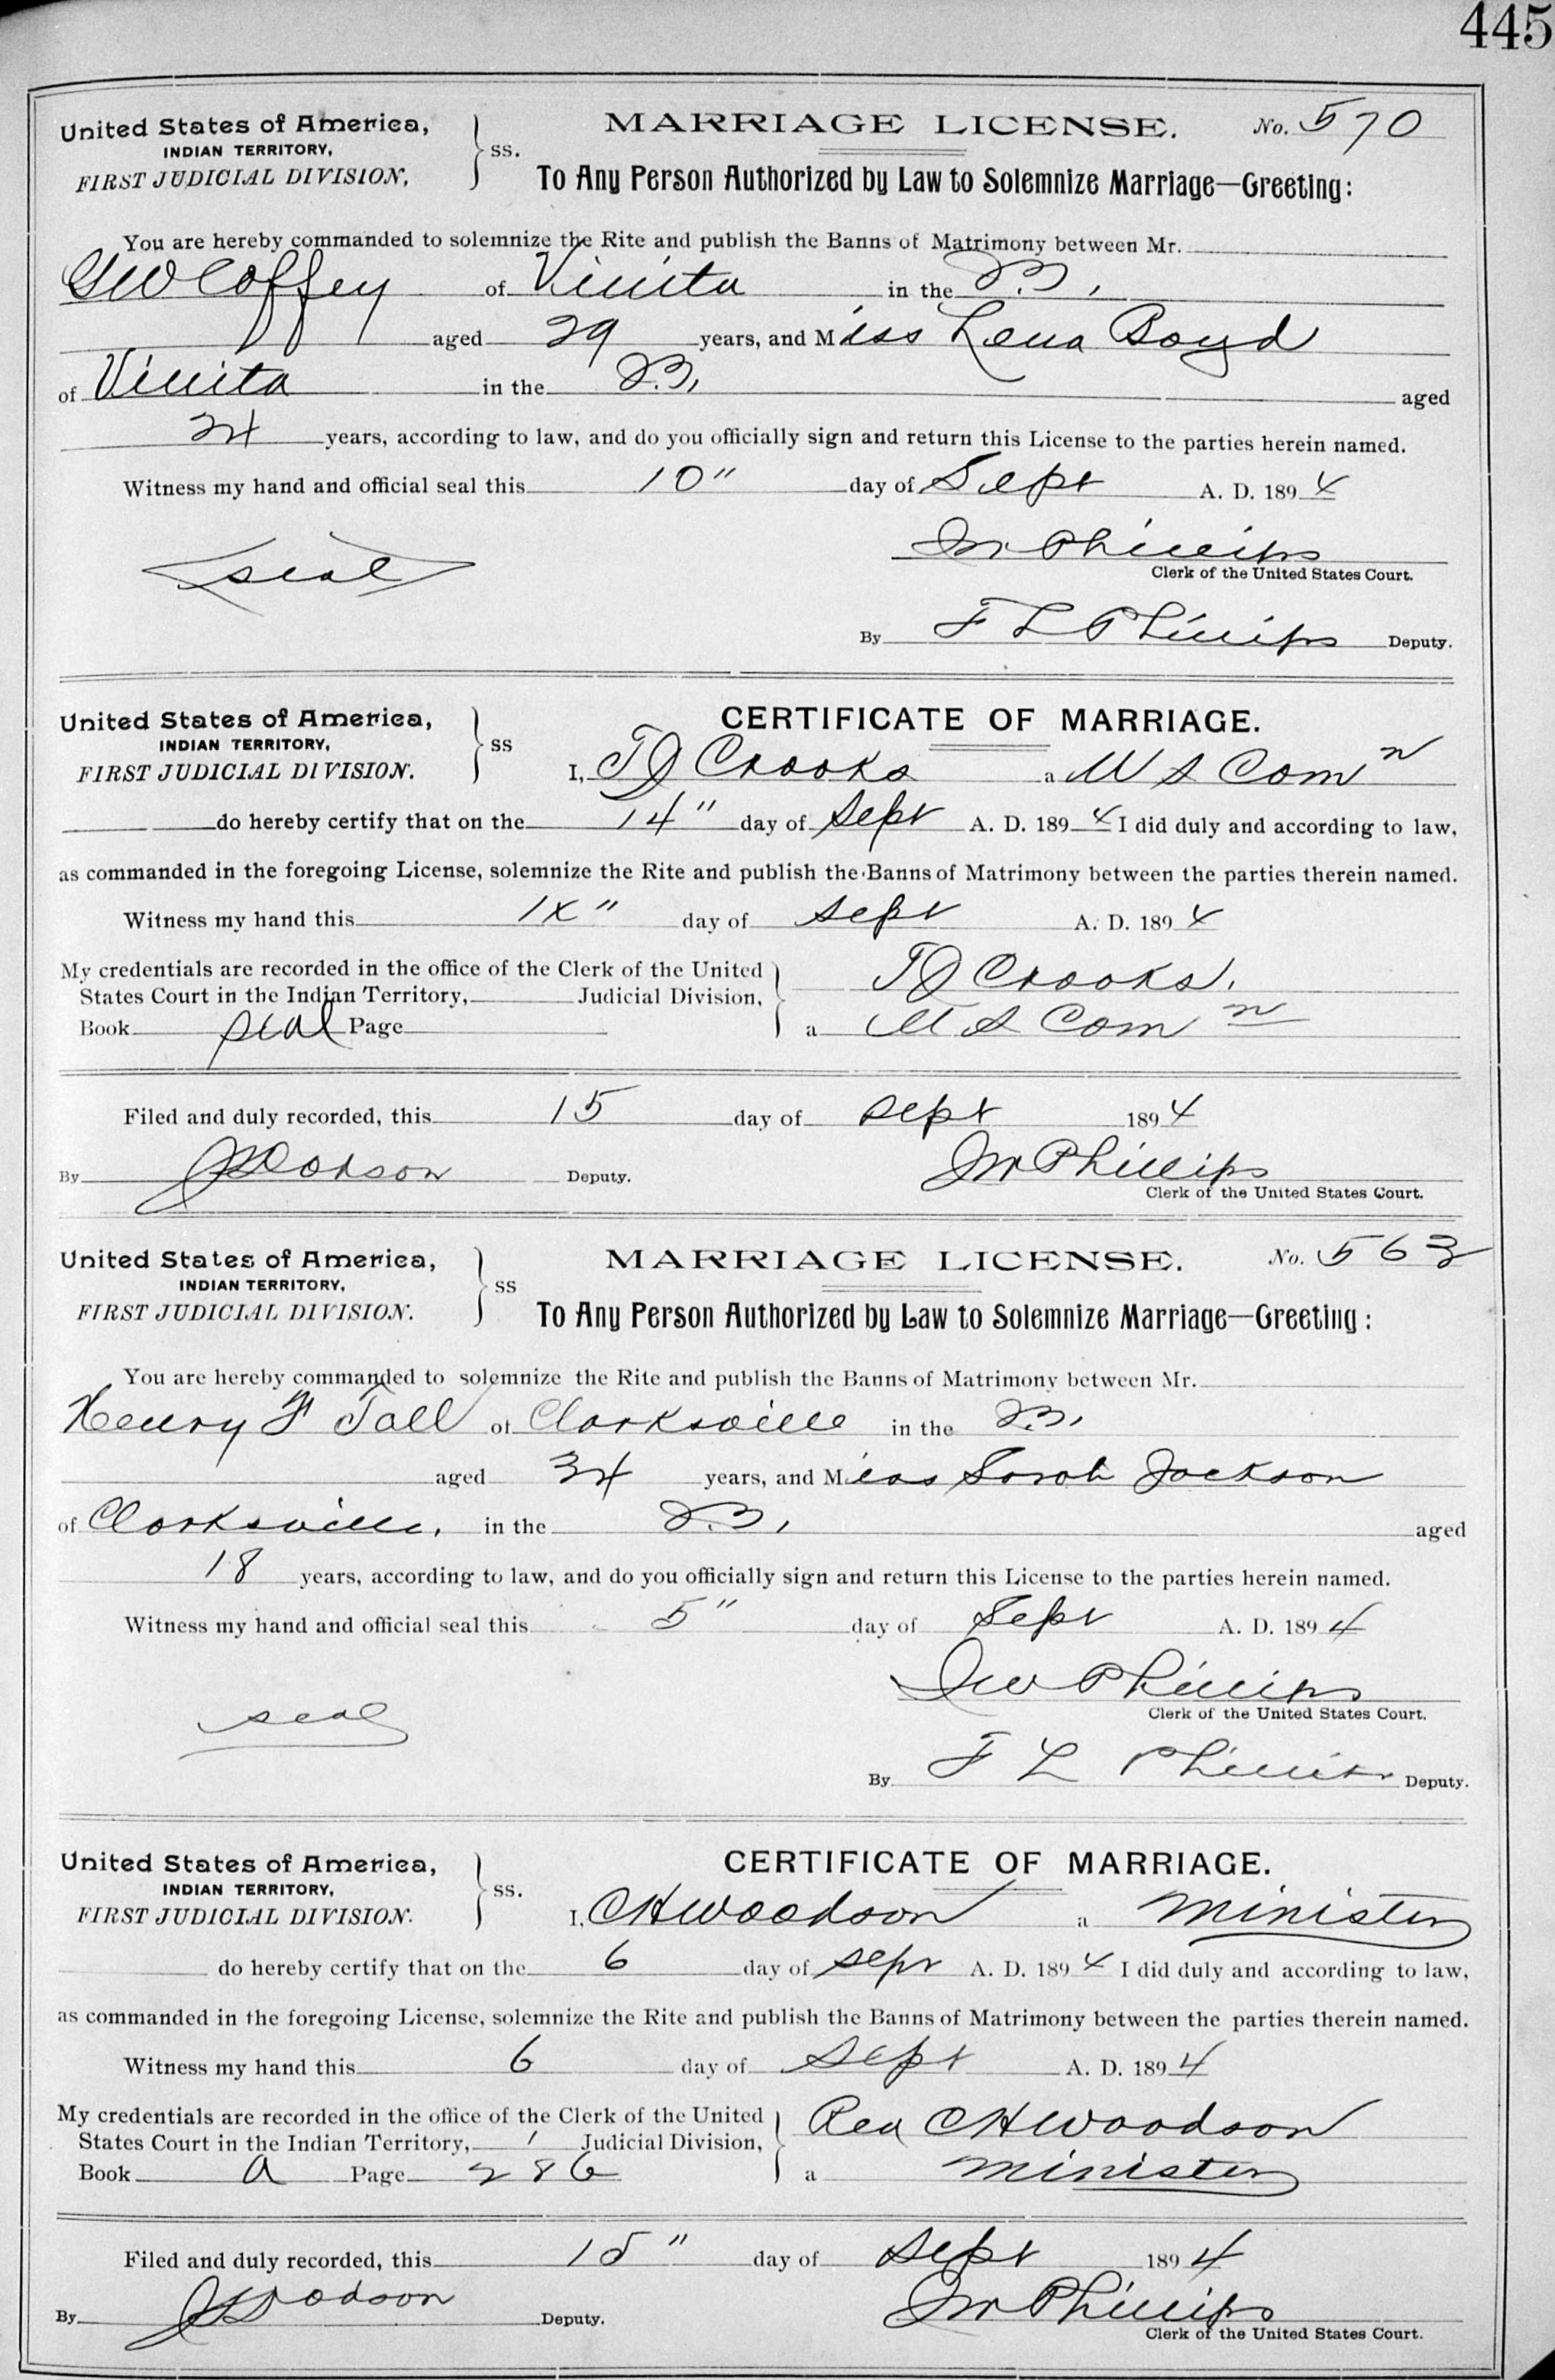 445
United States of America,
INDIAN TERRITORY,
FIRST JUDICIAL DIVISION,
ss.
MARRIAGE LICENSE. No. 570
To Any Person Authorized by Law to Solemnize Marriage—Greeting:
You are hereby commanded to solemnize the Rite and publish the Banns of Matrimony between Mr.
GW Coffey of Vinita in the
aged 29 years, and Miss Lena Boyd
of Vinita in the aged
24 years, according to law, and do you officially sign and return this License to the parties herein named.
Witness my hand and official seal this 10" day of Sept A. D. 1894
seal
Phillips
Clerk of the United States Court.
By F L Phillips Deputy.
United States of America,
INDIAN TERRITORY,
FIRST JUDICIAL DIVISION.
ss
CERTIFICATE OF MARRIAGE.
I, Crooks a U S Com n
do hereby certify that on the 14" day of Sept A. D. 1894 I did duly and according to law,
as commanded in the foregoing License, solemnize the Rite and publish the Banns of Matrimony between the parties therein named.
Witness my hand this 14" day of Sept A. D. 1894
My credentials are recorded in the office of the Clerk of the United
States Court in the Indian Territory, Judicial Division,
Book seal Page
Crooks.
a U S Com n
Filed and duly recorded, this 15 day of Sept 1894
By Dodson Deputy.
Phillips
Clerk of the United States Court.
United States of America,
INDIAN TERRITORY,
FIRST JUDICIAL DIVISION.
ss
MARRIAGE LICENSE. No. 563
To Any Person Authorized by Law to Solemnize Marriage—Greeting:
You are hereby commanded to solemnize the Rite and publish the Banns of Matrimony between Mr.
Henry F Tall of Clarksville in the
aged 34 years, and Miss Sarah Jackson
of Clarksville, in the aged
18 years, according to law, and do you officially sign and return this License to the parties herein named.
Witness my hand and official seal this 5" day of Sept A. D. 1894
seal
Phillips
Clerk of the United States Court.
By F L Phillips Deputy.
United States of America,
INDIAN TERRITORY,
FIRST JUDICIAL DIVISION.
ss.
CERTIFICATE OF MARRIAGE.
I, CH Woodson a Minister
do hereby certify that on the 6 day of Sept A. D. 1894 I did duly and according to law,
as commanded in the foregoing License, solemnize the Rite and publish the Banns of Matrimony between the parties therein named.
Witness my hand this 6 day of Sept A. D. 1894
My credentials are recorded in the office of the Clerk of the United
States Court in the Indian Territory, 1 Judicial Division,
Book A Page 286
Rev CH Woodson
a Minister
Filed and duly recorded, this 15" day of Sept 1894
By Dodson Deputy.
Phillips
Clerk of the United States Court.